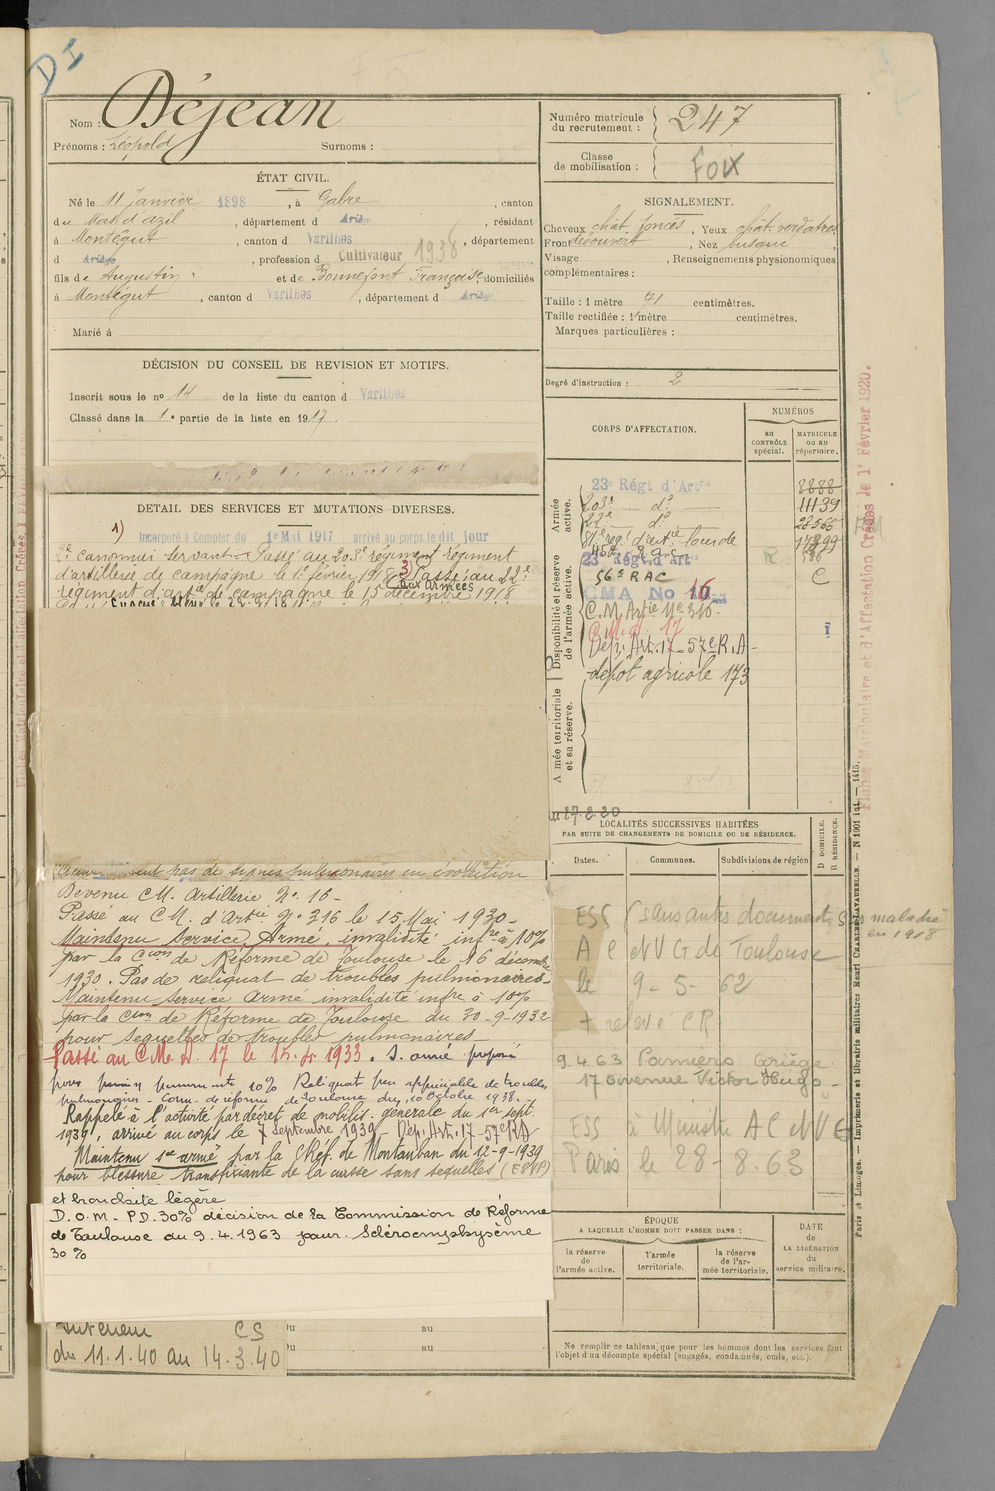 DI
Nom : Déjean
Prénoms : Léopold Surnoms :
Numéro matricule du recrutement : 247
Classe de mobilisation : FOIX
ÉTAT CIVIL.
Né le 11 Janvier 1898, à Gabre, canton
du Mas d'azil, département d Ariège, résidant
à Montégut, canton d Varilhes, département
d Ariège, profession d Cultivateur 1938
fils de Augustin et de Bonnefont Françoise, domiciliés
à Montégut, canton d Varilhes, département d Ariège
Marié à
SIGNALEMENT.
Cheveux chât. foncés, Yeux chât. verdatres
Front découvert, Nez busqué
Visage , Renseignements physionomiques
complémentaires :
Taille : 1 mètre 71 centimètres.
Taille rectifiée : 1 mètre centimètres.
Marques particulières :
Degré d'instruction : 2
DÉCISION DU CONSEIL DE REVISION ET MOTIFS.
Inscrit sous le no 14 de la liste du canton d Varilhes
Classé dans la 1e partie de la liste en 1917.
DÉTAIL DES SERVICES ET MUTATIONS DIVERSES.
1) Incorporé à Compter du 1er Mai 1917 arrivé au corps le dit jour
2e canonnier servant. Passé au 203e régiment régiment
d'artillerie de campagne le 1er février 1918 3) Passé au 22e
régiment d'artie de campagne le 15 décembre 1918
aux armées
pas de signes pulmonaires en évolution
Devenu CM. Artillerie No. 16 -
Passé au CM. d'Artie No 316 le 15 Mai 1930 -
Maintenu Service Armé, invalidité infre à 10%
par la Cion de Réforme de Toulouse le 16 décembre
1930. Pas de reliquat de troubles pulmonaires -
Maintenu service armé invalidité infre à 10%
par la Cion de Réforme de Toulouse du 30-9-1932
pour sequelles de troubles pulmonaires -
Passé au C.M.A. 17 le 15.4.1933. S. armé proposé
pour pension permanente 10% Reliquat peu appréciable de troubles
pulmonaires - Com. de réforme de Toulouse du 10 Octobre 1938. -
Rappelé à l'activité par décret de mobilis. générale du 1er sept.
1939, arrivé au corps le 7 Septembre 1939 Dép. Art. 17 - 57e RA
Maintenu sce armé par la Cn Réf. de Montauban du 12-9-1939
pour blessure transfixante de la cuisse sans sequelles
et bronchite légère
D.O.M. - P.D. 30% décision de la Commission de Réforme
de Toulouse du 9.4.1963 pour : Scléroemphysème
30 %
CS
du 11.1.40 au 14.3.40
Du au
Du au
CORPS D'AFFECTATION.
NUMÉROS
au CONTRÔLE spécial.
MATRICULE ou au répertoire.
Armée active.
23e Régt d'Artie 8888
203e do 11139
22e do
81e rég. d'artie lourde
Disponibilité et réserve de l'armée active.
23e Régt. d'art R.
56e RAC C
CMA No 16
C.M. Artie No 316
C.M.A. 17
Dép. Art. 17 - 57e R.A -
dépot agricole 173
Armée territoriale et sa réserve.
du 27.2.20
LOCALITÉS SUCCESSIVES HABITÉES
PAR SUITE DE CHANGEMENTS DE DOMICILE OU DE RÉSIDENCE.
Dates.
Communes.
Subdivisions de région
D DOMICILE.
R RÉSIDENCE.
ESS (sans autres documents maladie
en 1918
A C et V G de Toulouse
le 9-5-62
+ relevé CR
9.4.63 Pamiers Ariège
17 avenue Victor Hugo -
ESS à Ministre A C et V G
Paris le 28-8.63
ÉPOQUE
A LAQUELLE L'HOMME DOIT PASSER DANS :
la réserve de l'armée active.
l'armée territoriale.
la réserve de l'armée territoriale.
DATE de LA LIBÉRATION du service militaire.
Ne remplir ce tableau que pour les hommes dont les services font
l'objet d'un décompte spécial (engagés, condamnés, omis, etc.).
Fiches Matriculaire et d'Affectation Créées le 1er Février 1920.
Paris et Limoges. — Imprimerie et librairie militaires Henri CHARLES-LAVAUZELLE. — N 1001 int. — 1415.